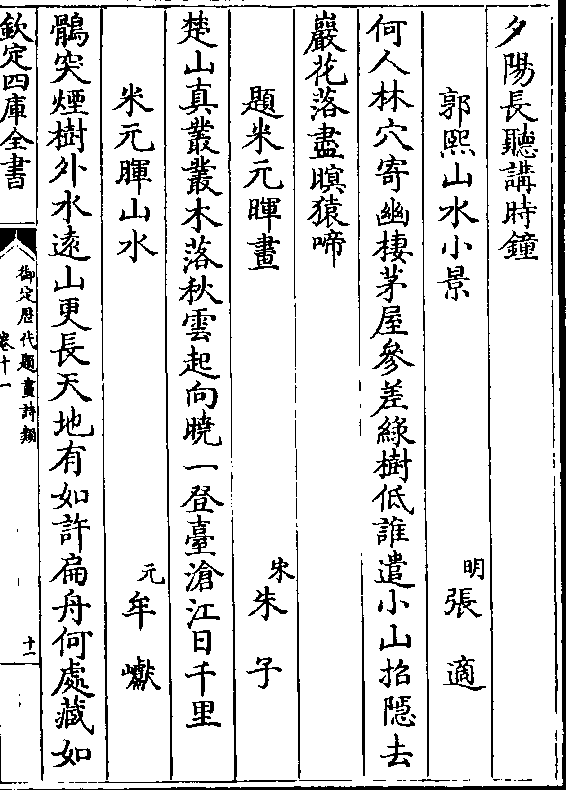 夕陽長聽講時鐘
郭熙山水小景 明 張適
何人林穴寄幽棲茅屋參差綠樹低誰遣小山招隱去
巖花落盡暝猿啼
題米元暉畫 宋 朱子
楚山真叢叢木落秋雲起向曉一登臺滄江日千里
米元暉山水 元 牟巘
鶻突煙樹外水遠山更長天地有如許扁舟何處藏如
欽定四庫全書
御定歴代題畫詩類
卷十一
十一